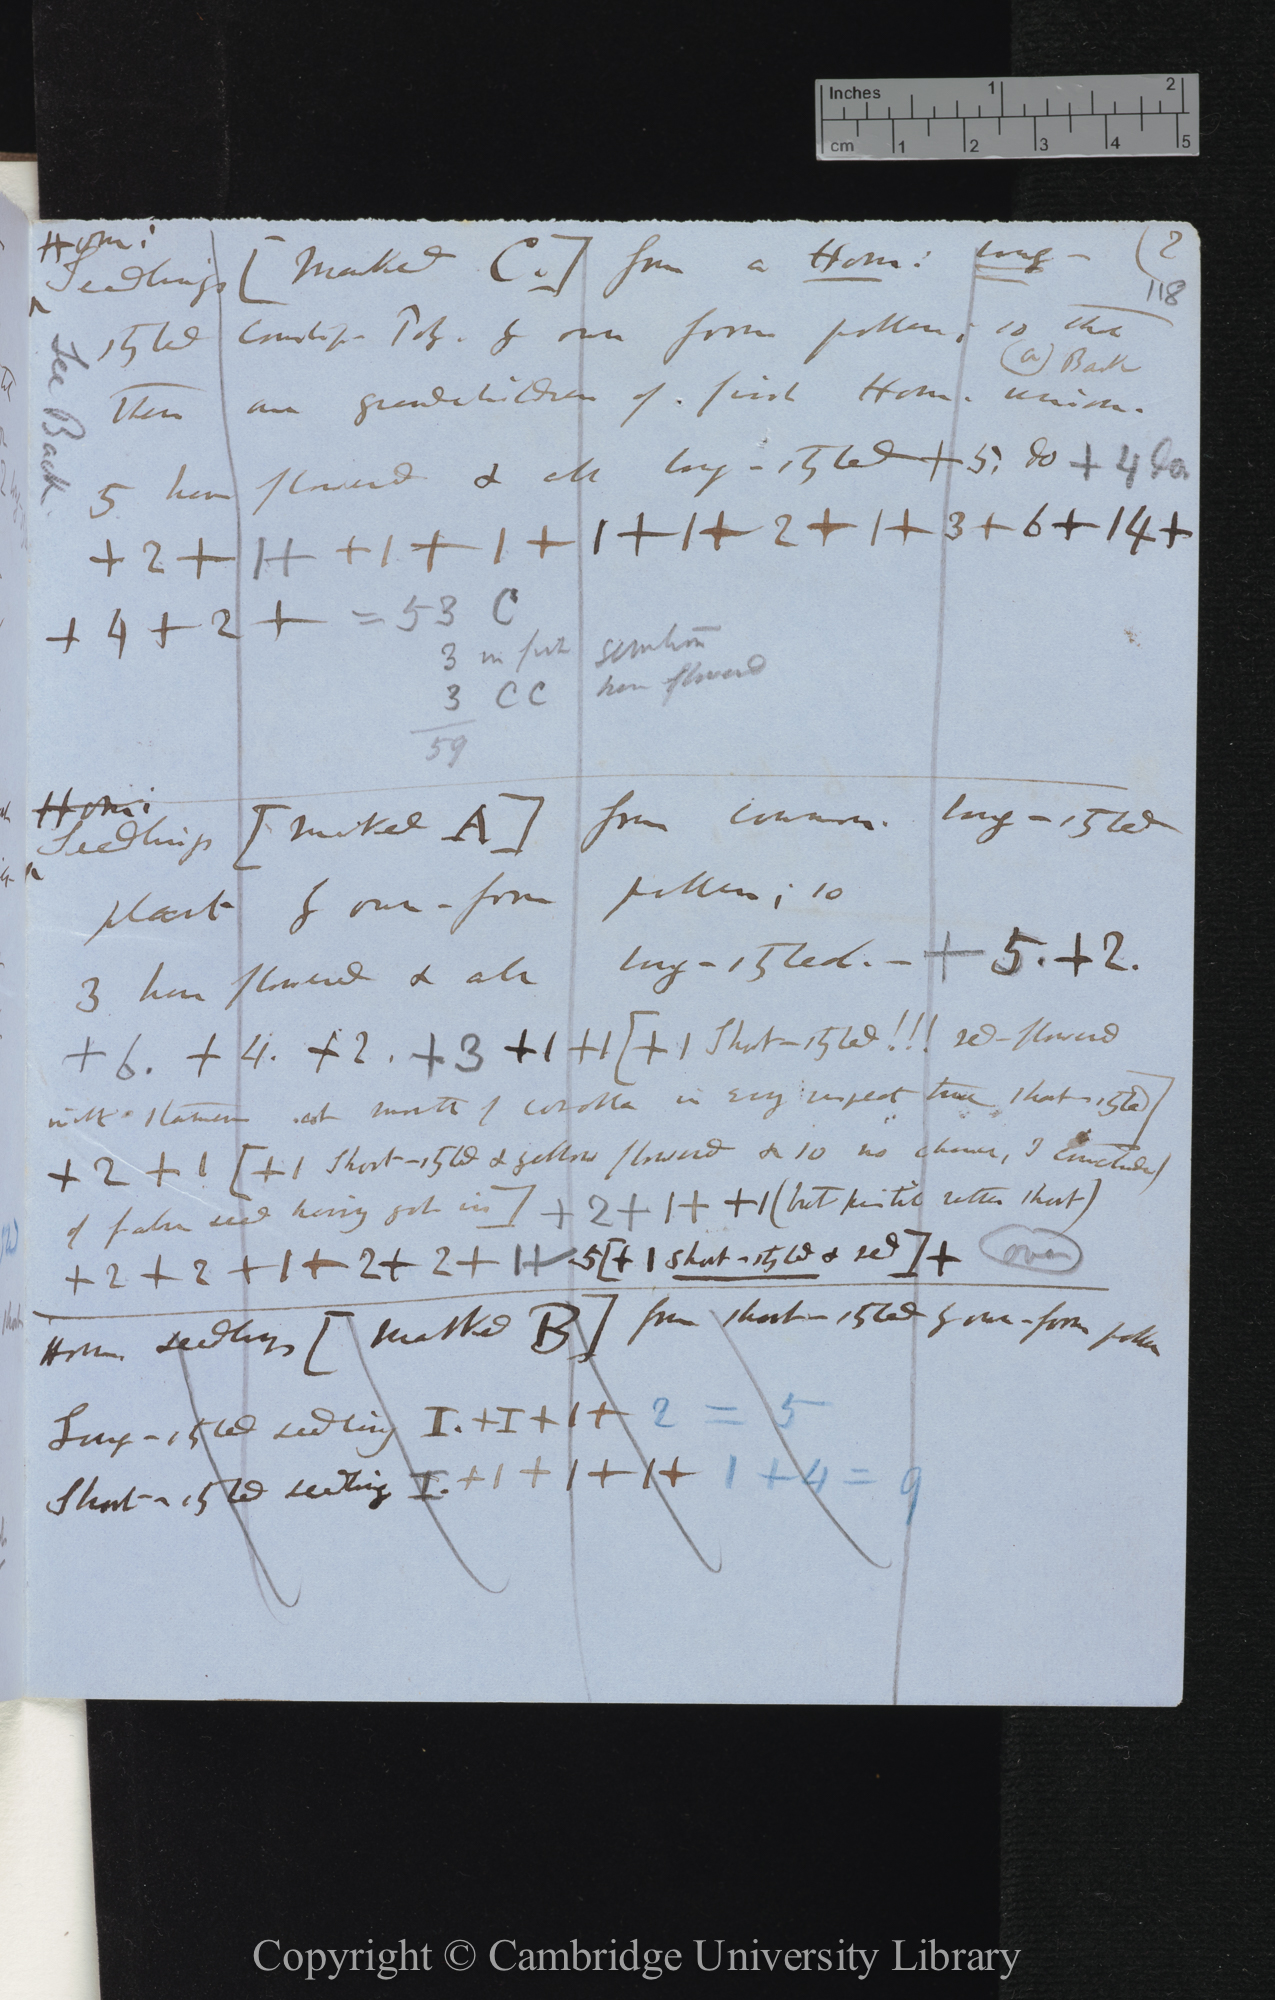 Inches 1 2
cm 1 2 3 4 5
(2
118
Hom:
Seedlings [Marked C.] from a Hom: long-
styled Cowslip by own form pollen; so that
(a) Back
these are grandchildren of first Hom. union.
See Back.
5 have flowered & all long-styled + 5. do + 4 do
+ 2 + 1 + + 1 + 1 + 1 + 1 + 2 + 1 + 3 + 6 + 14 +
+ 4 + 2 + = 53 C
3 in
3 CC have flowered
59
Hom:
Seedlings [Marked A] from common long-styled
plant by own-form pollen; so
3 have flowered & all long-styled. - + 5. + 2.
+ 6. + 4. + 2. + 3 + 1 + 1 [+ 1 Short-styled!!! red-flowered
with stamens at mouth of corolla in every respect true short-styled]
+ 2 + 1 [+ 1 Short-styled & yellow flowered & so no chance, I conclude,
of false seed having got in] + 2 + 1 + + 1 (but pistil rather short)
+ 2 + 2 + 1 + 2 + 2 + 1 + 5 [+ 1 short-styled & red] + over
Hom. seedlings [Marked B] from short-styled by own-form pollen
Long-styled seedling I. + I + 1 + 2 = 5
Short-styled seedling I. + 1 + 1 + 1 + 1 + 4 = 9
Copyright © Cambridge University Library